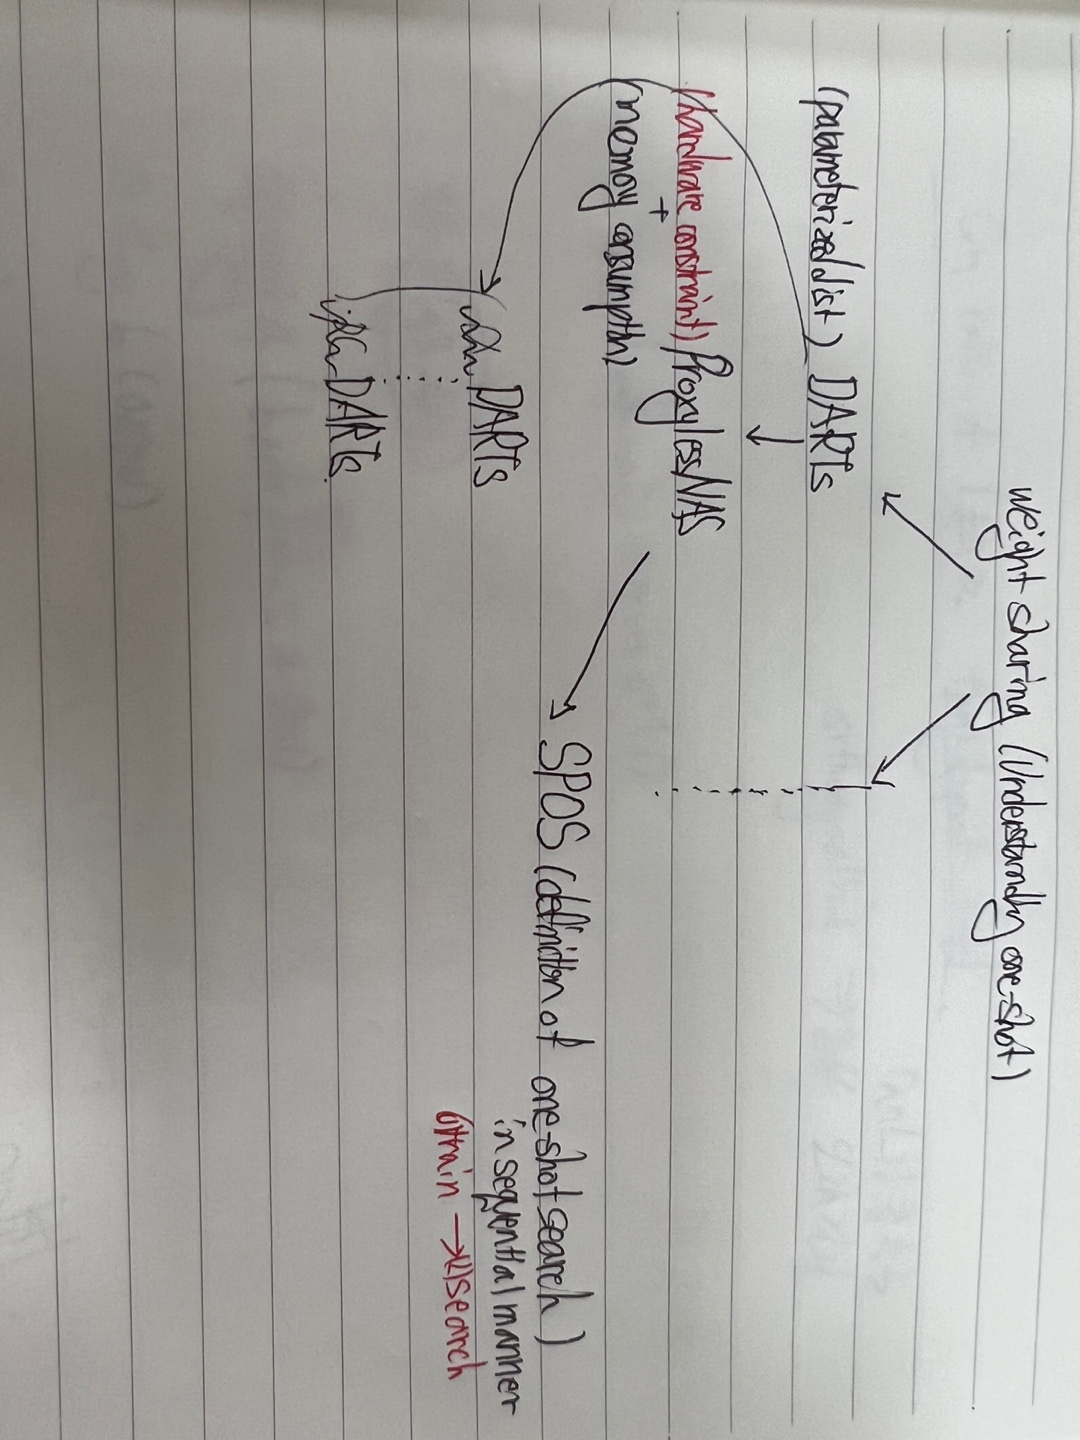 weight sharing (Understanding one-shot)
(parameterized dist) DARTs
(hardware constraint) ProxylessNAS
+
(memory consumption)
SPOS (definition of one-shot search)
in sequential manner
(1) train → (2) search
DARTs
DARTs